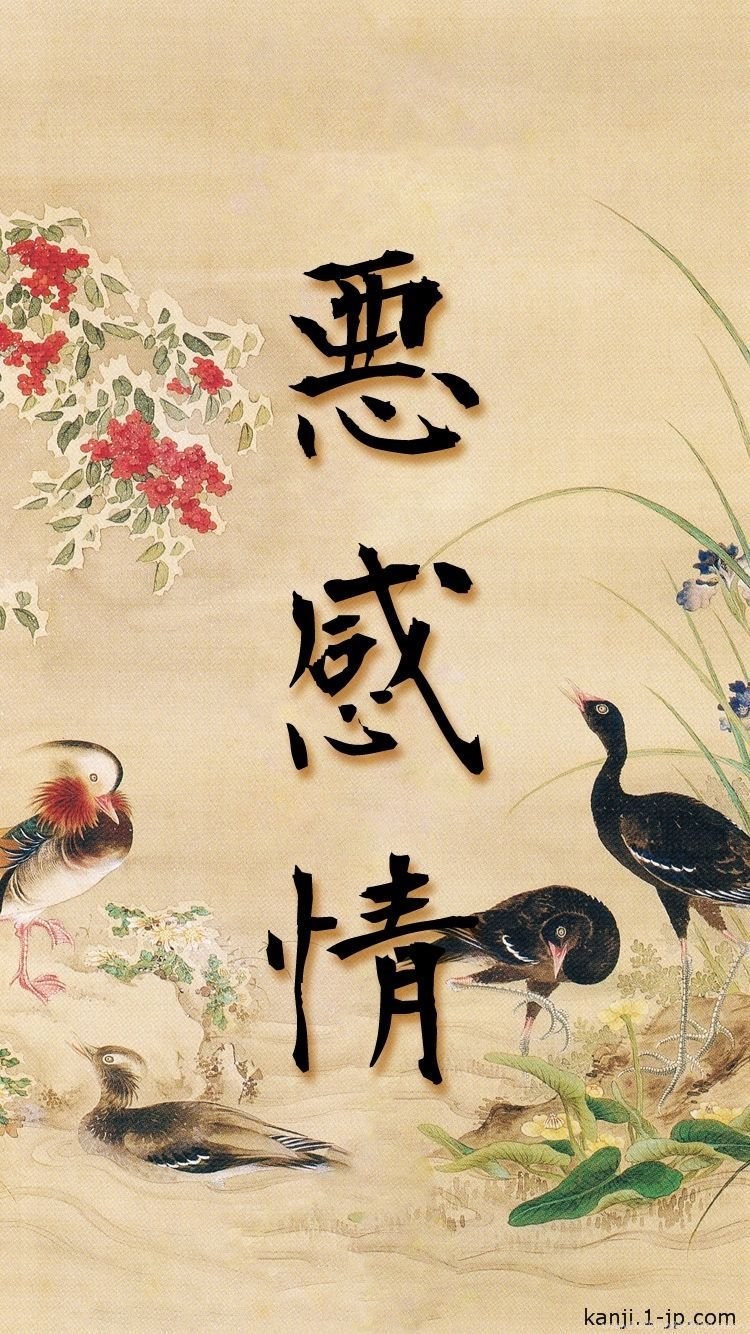 悪感情
kanji.1-jp.com